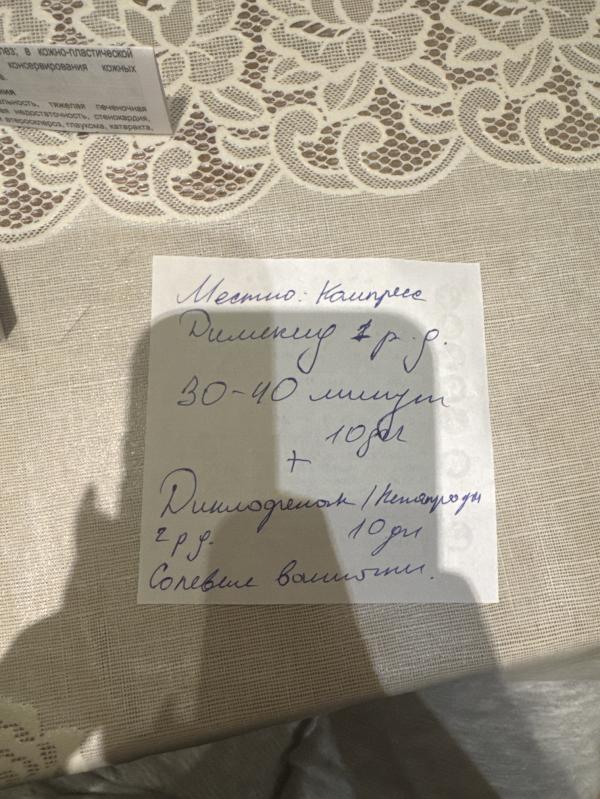 лез, в кожно-пластической
консервирования кожных
альность, тяжелая печеночная
ая недостаточность, стенокардия,
атеросклероз, глаукома, катаракта,
Местно: Компресс
Димексид 1 р. д.
30-40 минут
10 дн
+
Диклофенак /
2 р д. 10 дн
Солевые ванночки.